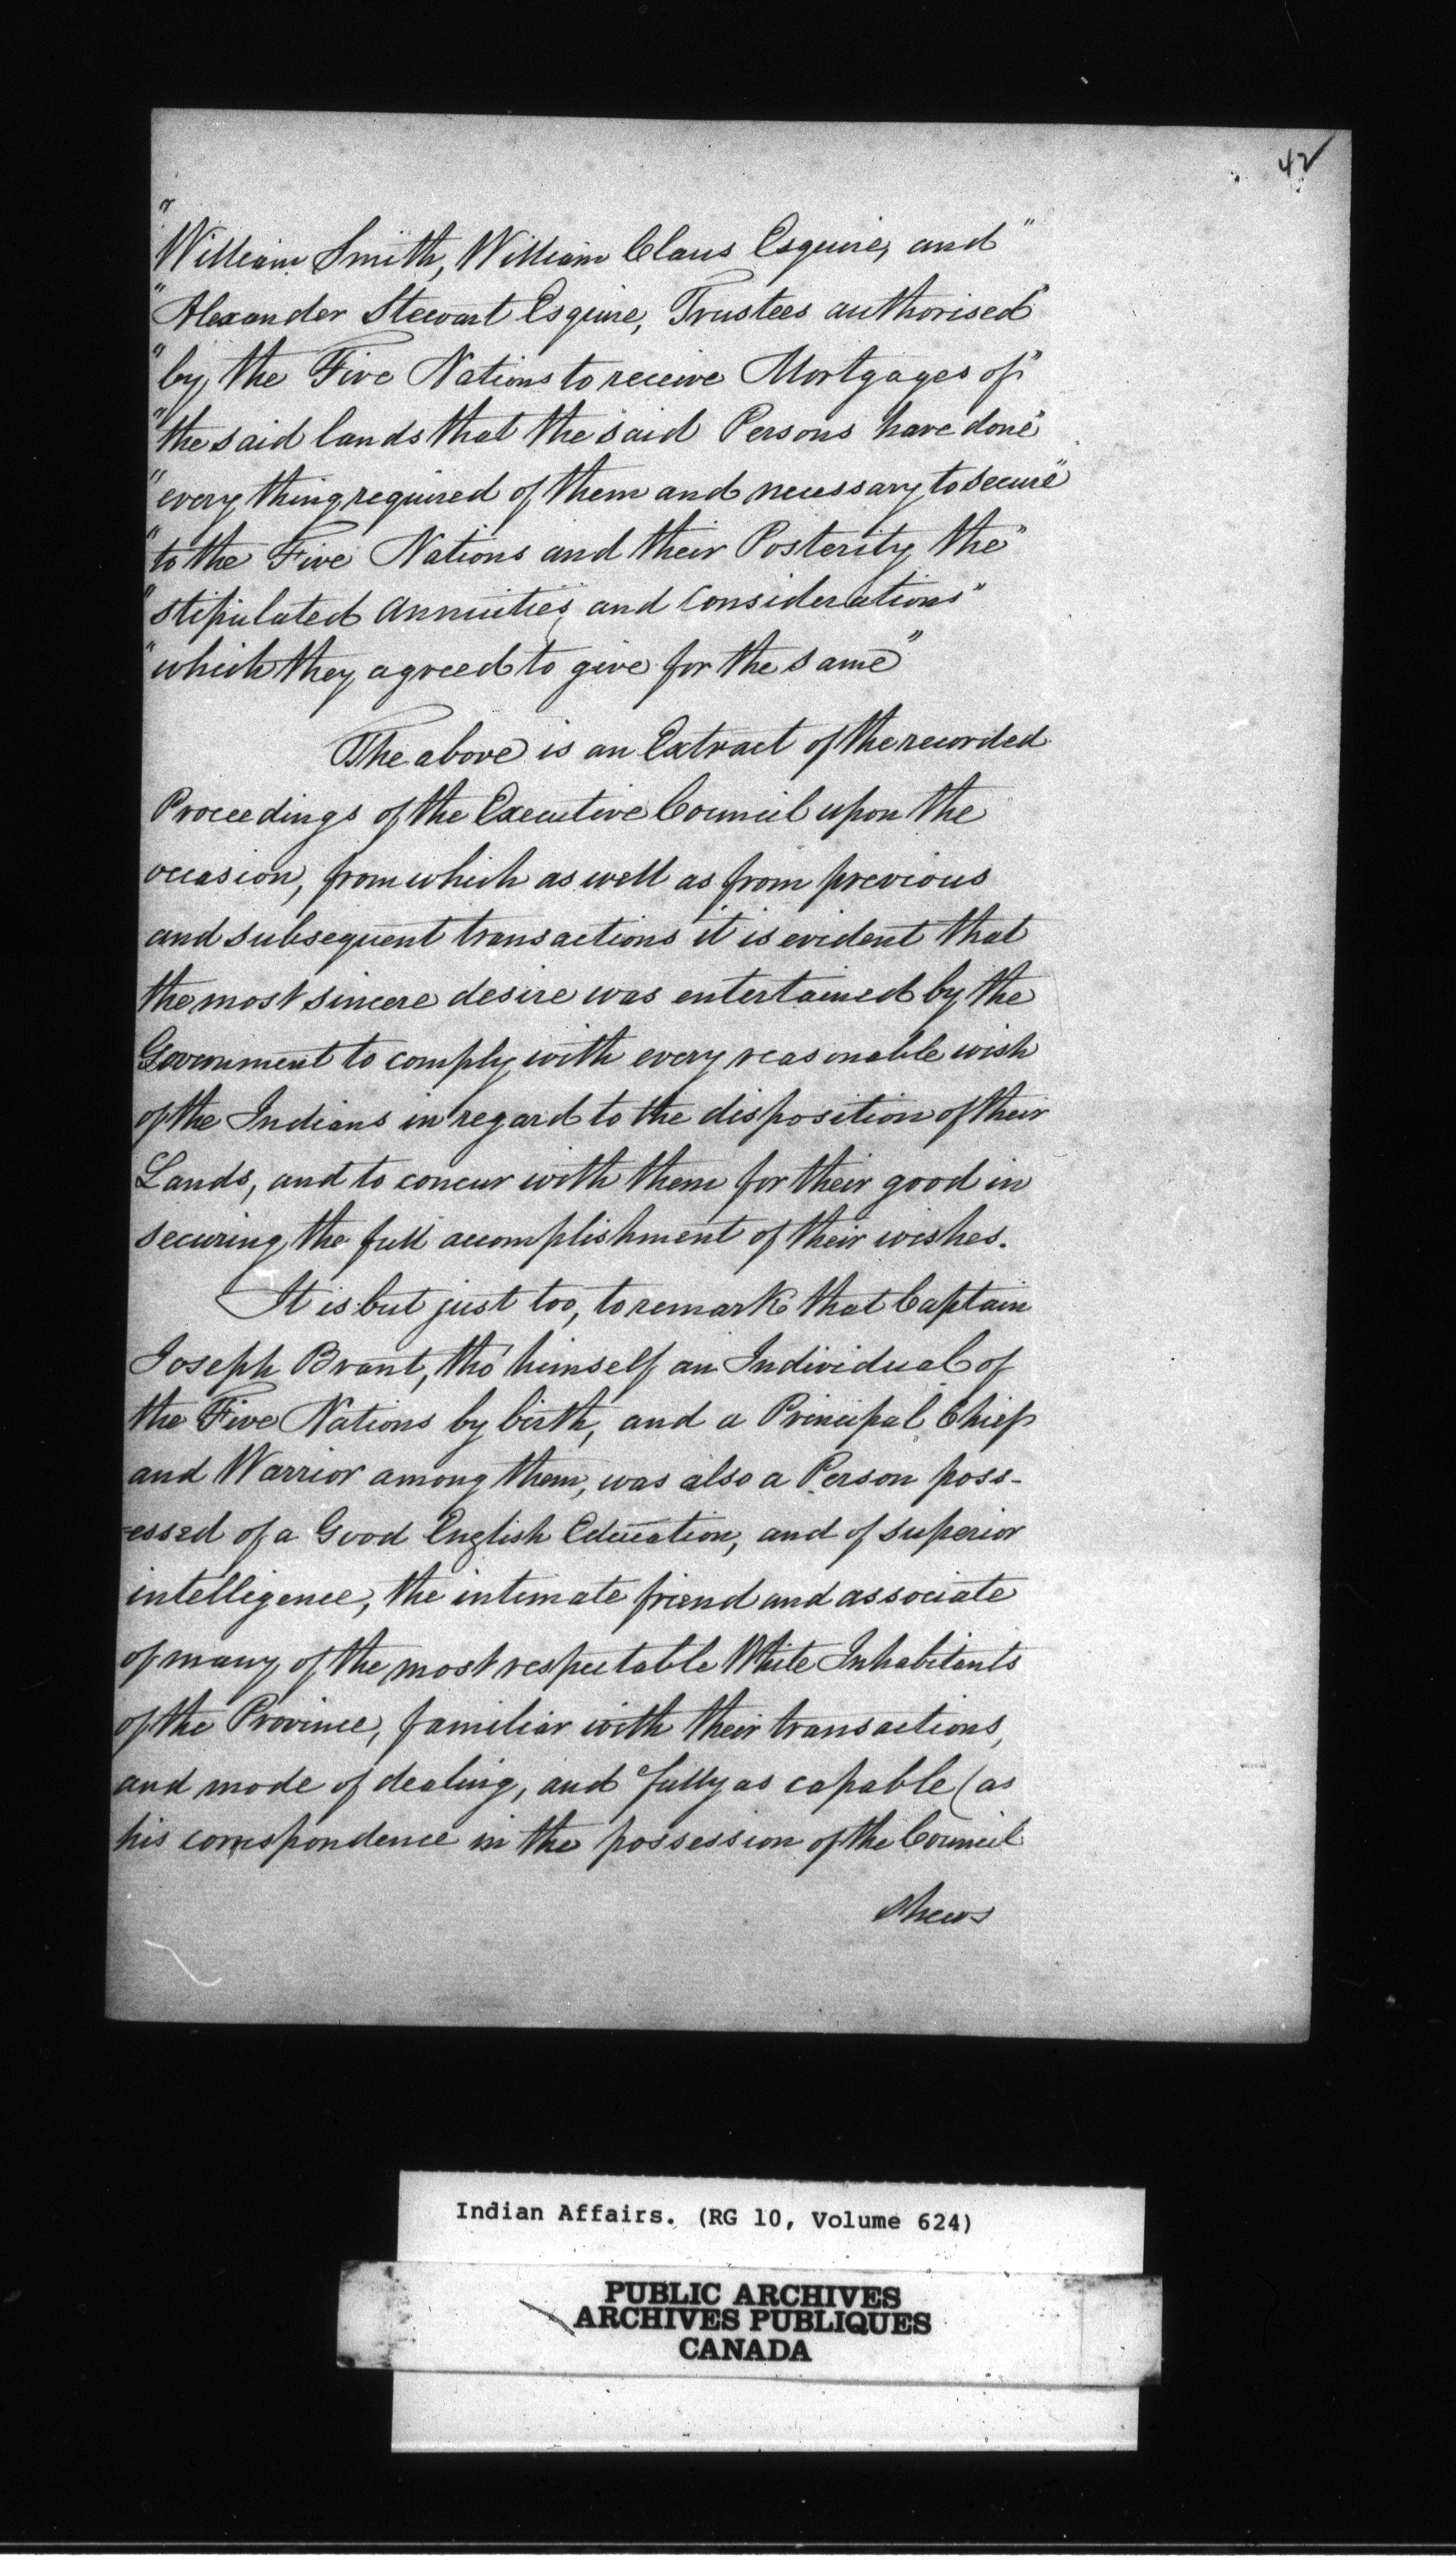 42
"William Smith, William Claus Esquire, and"
"Alexander Stewart Esquire, Trustees authorised"
"by the Five Nations to receive Mortgages of"
"the said lands that the said Persons have done"
"every thing required of them and necessary to secure"
"to the Five Nations and their Posterity the"
"stipulated annuities, and Considerations"
"which they agreed to give for the same"
The above is an Extract of the recorded
Proceedings of the Executive Council upon the
occasion, from which as well as from previous
and subsequent transactions it is evident that
the most sincere desire was entertained by the
Government to comply with every reasonable wish
of the Indians in regard to the disposition of their
Lands, and to concur with them for their good in
securing the full accomplishment of their wishes.
It is but just too, to remark that Captain
Joseph Brant, tho' himself an Individual of
the Five Nations by birth, and a Principal Chief
and Warrior among them, was also a Person poss-
-essed of a Good English Education, and of superior
intelligence, the intimate friend and associate
of many of the most respectable White Inhabitants
of the Province, familiar with their transactions,
and mode of dealing, and fully as capable (as
his correspondence in the possession of the Council
shews
Indian Affairs. (RG 10, Volume 624)
PUBLIC ARCHIVES
ARCHIVES PUBLIQUES
CANADA